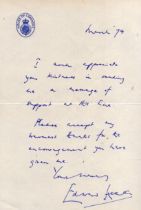 HOUSE OF COMMONS
March '74
I much appreciate
your kindness in sending
me a message of
support at this time
Please accept my
warmest thanks for the
encouragement you have
given me.
Yours sincerely
Edward Heath